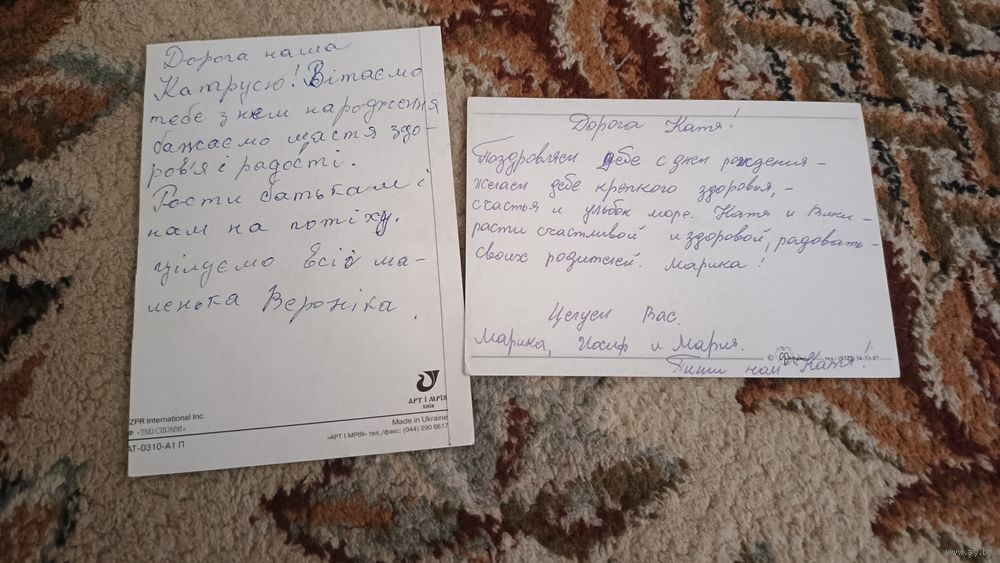 Дорога наша
Катрусю! Вітаємо
тебе з нем народження
бажаємо щастя здо-
ров'я і радості.
Рости батькам і
нам на потіху.
цілуємо Всі ма-
ленька Вероніка.
АРТ І МРІЯ
КИЇВ
ZPR International Inc.
Made in Ukraine
е «ТАКІ СПРАВИ»
«АРТ І МРІЯ» тел./факс: (044) 290 6617
АТ-0310-А1 П
Дорога Катя!
Поздровляєм дебе с днем рождения -
желаем дебе крепкого здоровья, -
счастья и улыбок море. Катя и
расти счастливой и здоровой, радовать -
своих родителей. Марика!
Целуем Вас.
Марика, Иосиф и Мария.
©
34-33-87
Пиши нам Катя!
www.ay.by